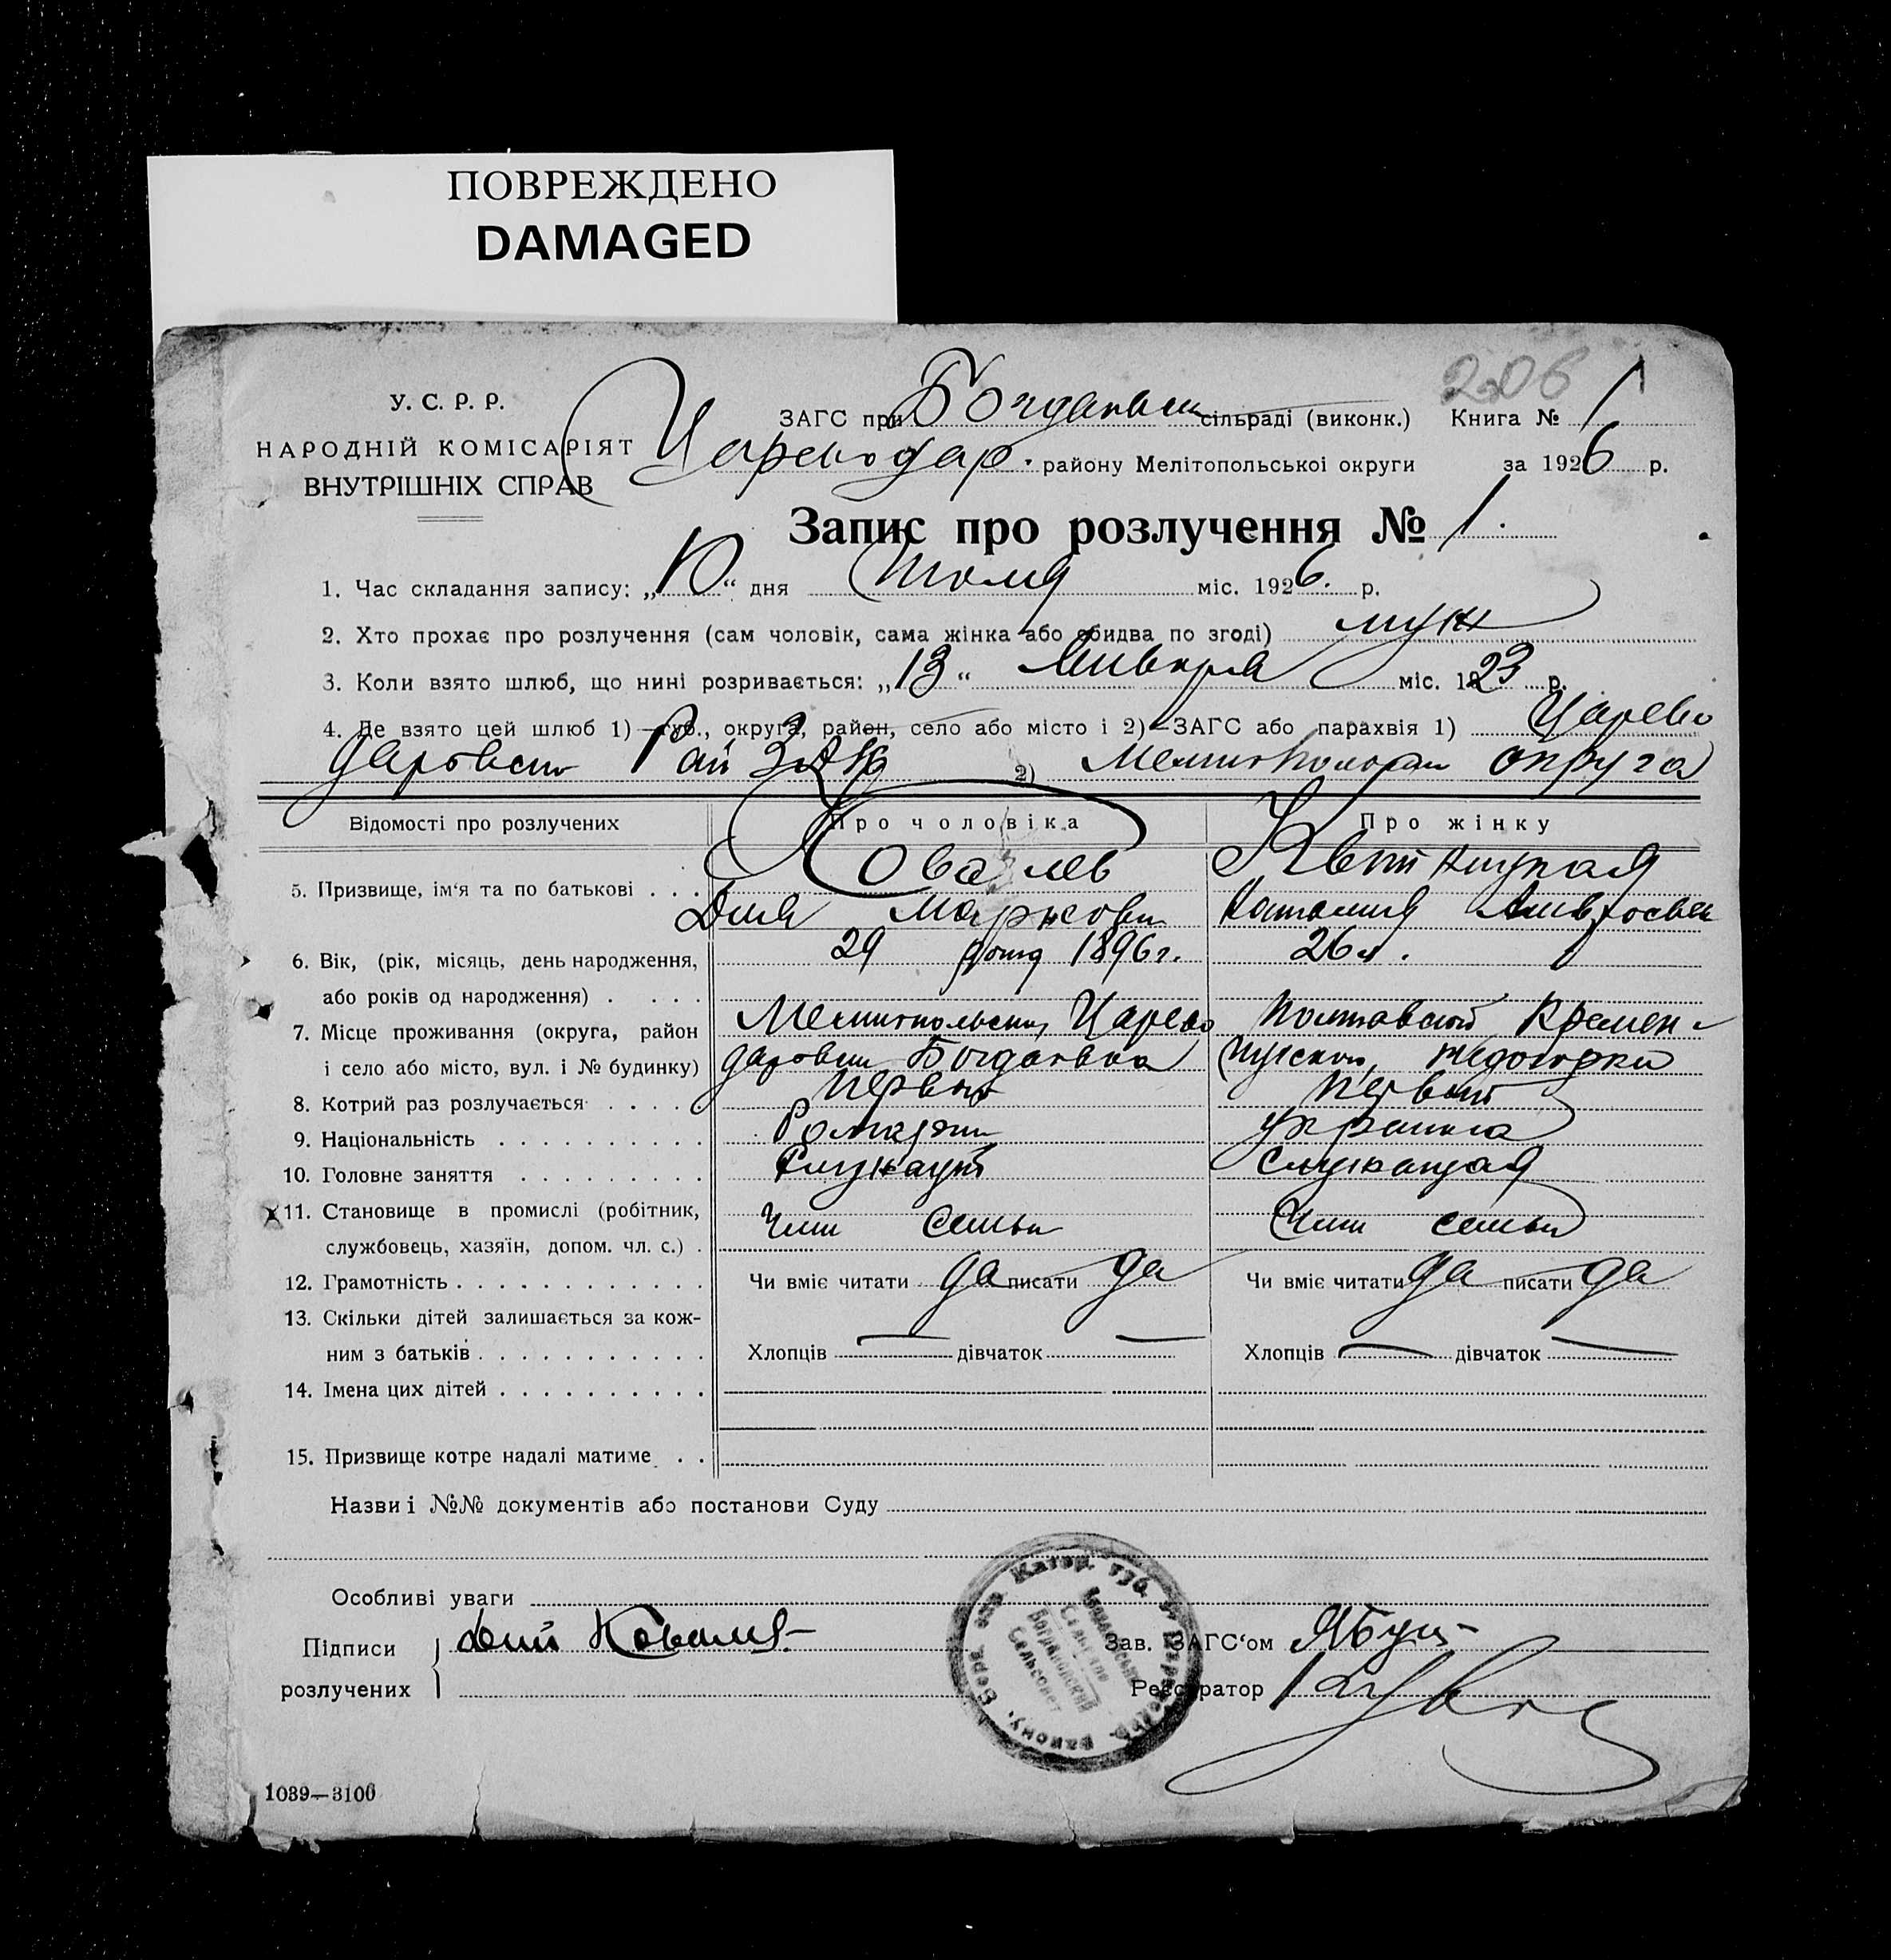 ПОВРЕЖДЕНО
DAMAGED
206
У. С. Р. Р.
НАРОДНІЙ КОМІСАРІЯТ
ВНУТРІШНІХ СПРАВ
ЗАГС при Богдановск сільраді (виконк.) Книга № 1
Цареводар. району Мелітопольської округи за 1926 р.
Запис про розлучення № 1.
1. Час складання запису: „10“ дня Июля міс. 1926. р.
2. Хто прохає про розлучення (сам чоловік, сама жінка або обидва по згоді) муж
3. Коли взято шлюб, що нині розривається: „13“ Января міс. 1923 р.
4. Де взято цей шлюб 1) губ., округа, район, село або місто і 2) ЗАГС або парахвія 1) Царево
даровский Рай ЗАГС 2) Мелитопольск округа
Відомості про розлучених
Про чоловіка
Про жінку
5. Призвище, ім‘я та по батькові . . .
Ковалев
Маркович
6. Вік, (рік, місяць, день народження,
або років од народження) . . . .
29 1896 г.
26 л.
7. Місце проживання (округа, район
і село або місто, вул. і № будинку)
Мелитопольский, Царево
даровский Богдановка
Полтавской Кремен-
чугской,
8. Котрий раз розлучається . . . .
Первый
Первый
9. Національність . . . . . . . . . .
украинка
10. Головне заняття . . . . . . . . .
Служащий
Служащая
11. Становище в промислі (робітник,
службовець, хазяїн, допом. чл. с.) .
Член семьи
Член семьи
12. Грамотність . . . . . . . . . . . .
Чи вміє читати да писати да
Чи вміє читати да писати да
13. Скільки дітей залишається за кож-
ним з батьків . . . . . . . . . . .
Хлопців — дівчаток —
Хлопців — дівчаток —
14. Імена цих дітей . . . . . . . . . .
15. Призвище котре надалі матиме . .
Назви і №№ документів або постанови Суду
Особливі уваги
Підписи
розлучених
Зав. ЗАГС‘ом
Реєстратор
Богдановский
Сельсовет
1039—3106